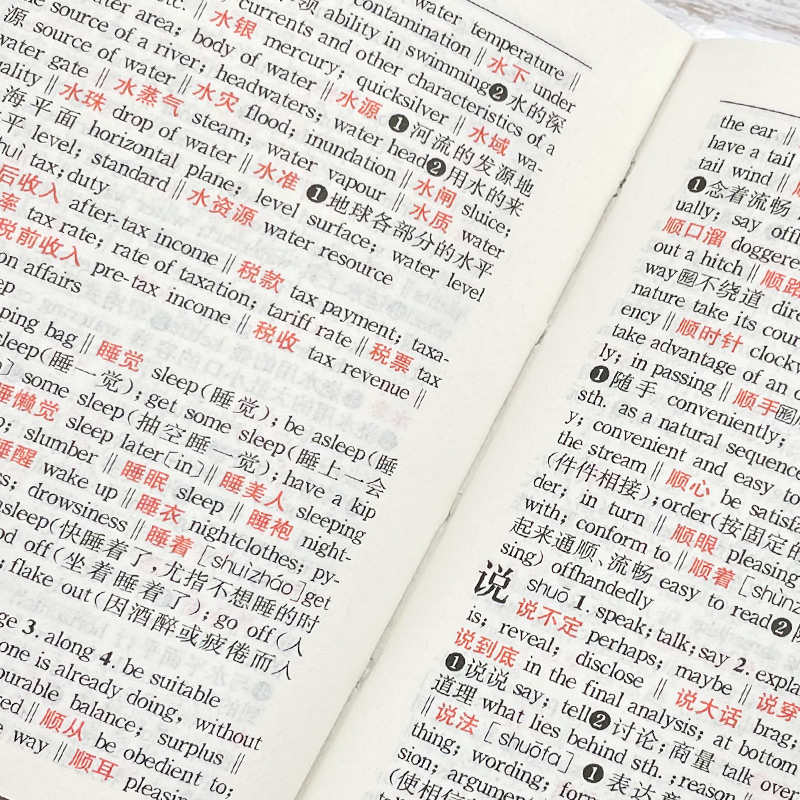 water temperature‖
contamination‖水下 under
领 ability in swimming❷水的深
currents and other characteristics of a
etc.‖水银 mercury; quicksilver‖水域 wa-
water area; body of water‖水源❶河流的发源地
the source of a river; headwaters; water head❷用水的来
源 source of water‖水灾 flood; inundation‖水闸 sluice;
water gate‖水蒸气 steam; water vapour‖水质 water
quality‖水珠 drop of water‖水准❶地球各部分的水平
海平面 horizontal plane; level surface; water level
平 level; standard‖水资源 water resource
shuì tax; duty
后收入 after-tax income‖税款 tax payment; taxa-
率 tax rate; rate of taxation; tariff rate‖税票 tax
税前收入 pre-tax income‖税收 tax revenue‖
affairs
bag‖睡觉 sleep(睡觉); be asleep(睡
sleep(睡一觉); get some sleep(睡上一会
some sleep(抽空睡一觉); have a kip
睡懒觉 sleep later[in]‖睡美人 sleeping
slumber‖睡眠 sleep‖睡袍 night-
睡醒 wake up‖睡衣 nightclothes; py-
drowsiness‖睡着[shuìzháo]get
asleep(快睡着了,尤指不想睡的时
off(坐着睡着了); go off(人
flake out(因酒醉或疲倦而入
3. along 4. be suitable
one is already doing, without
balance; surplus‖
‖顺从 be obedient to;
way‖顺耳 pleasing
the ear‖
have a tail
tail wind‖
❶念着流畅
ually; say
顺口溜 doggere
out a hitch‖顺路
way 不绕道
nature take its cour
ency‖顺时针 clockw
take advantage of an
ly; in passing‖顺手
❶随手 conveniently;
sth. as a natural sequence
y; convenient and easy to
the stream‖顺心 be satisfa
(件件相接); order(按固定的
der; in turn‖顺眼 pleasing
with; conform to‖顺着[shùnz
起来通顺、流畅 easy to read❷
sing) offhandedly
说 shuō 1. speak; talk; say 2. expla
说不定 perhaps; maybe‖说穿
is; reveal; disclose‖说大话 brag;
说到底 in the final analysis; at bottom
❶说说 say; tell❷讨论;商量 talk over
道理 what lies behind sth.; reason‖
说法[shuōfǎ]❶表达
thing; wording; form
sion; argument
(使相信